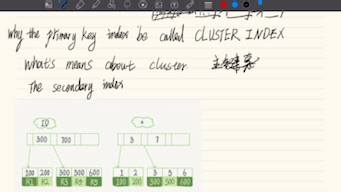 why the primary key index be called CLUSTER INDEX
What's means about cluster
The secondary index
ID
k
300 700
3 7
100 200 300 500 600
1 2 3 5 6
R1 R2 R3 R4 R5
100 200 300 500 600